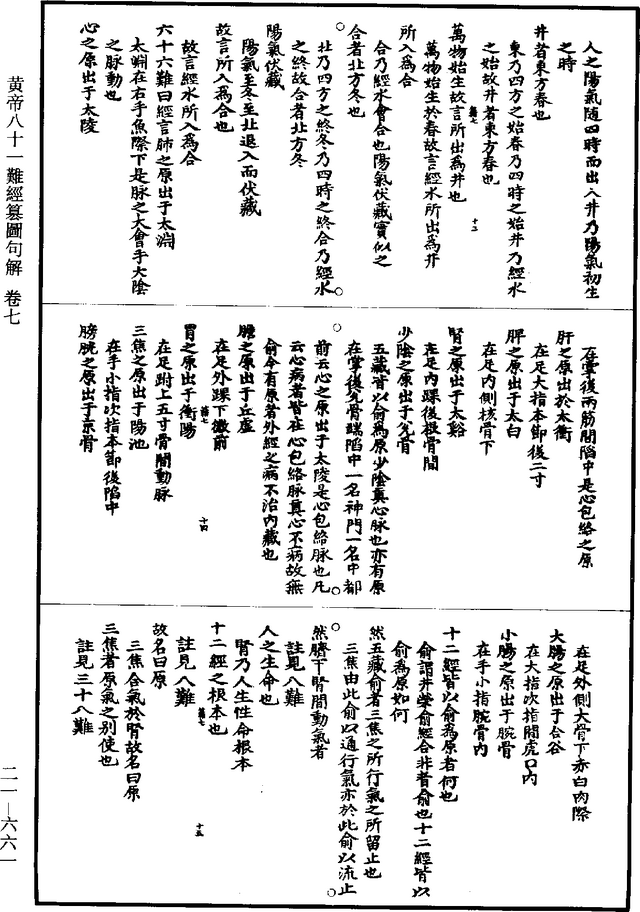 黃帝八十一難經纂圖句解　卷七
二一—六六一
人之陽氣隨四時而出入井乃陽氣初生
之時
井者東方春也
東乃四方之始春乃四時之始井乃經水
之始故井者東方春也
萬物始生故言所出爲井也
萬物始生於春故言經水所出爲井
所入爲合
合乃經水會合也陽氣伏藏實似之
合者北方冬也
北乃四方之終冬乃四時之終合乃經水
之終故合者北方冬
陽氣伏藏
陽氣至冬至北退入而伏藏
故言所入爲合也
故言經水所入爲合
六十六難曰經言肺之原出于太淵
太淵在右手魚際下是脉之大會手太陰
之脉動也
心之原出于太陵
在掌後兩筋間陷中是心包絡之原
肝之原出於太衝
在足大指本節後二寸
脾之原出于太白
在足内側核骨下
腎之原出于太谿
在足内踝後跟骨間
少陰之原出于兊骨
五藏皆以俞爲原少陰真心脉也亦有原
在掌後兊骨端陷中一名神門一名中都
前云心之原出于太陵是心包絡脉也凡
云心病者皆在心包絡脉真心不病故無
俞今有原者外經之病不治内藏也
膽之原出于丘虛
在足外踝下微前
胃之原出于衝陽
在足跗上五寸骨間動脉
三焦之原出于陽池
在手小指次指本節後陷中
膀胱之原出于京骨
在足外側大骨下赤白肉際
大腸之原出于合谷
在大指次指間虎口内
小腸之原出于腕骨
在手小指腕骨内
十二經皆以俞爲原者何也
俞謂井滎俞經合非背俞也十二經皆以
俞爲原如何
然五藏俞者三焦之所行氣之所留止也
三焦由此俞以通行氣亦於此俞以流止
然臍下腎間動氣者
註見八難
人之生命也
腎乃人生性命根本
十二經之根本也
註見八難
故名曰原
三焦合氣於腎故名曰原
三焦者原氣之别使也
註見三十八難